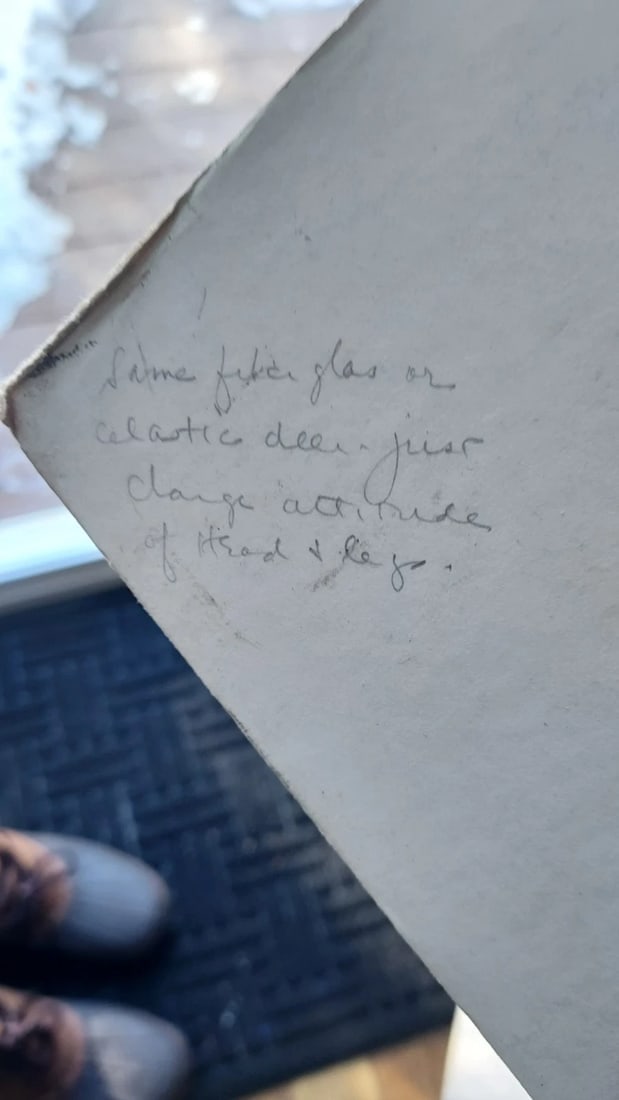 Same fiber glas or
celastic deer - just
change attitude
of Head & legs.